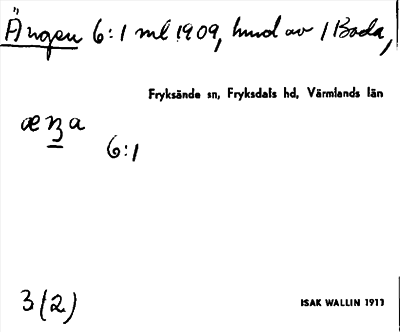 Ängen 6:1 ml 1909, hmd av 1 Boda,
Fryksände sn, Fryksdals hd, Värmlands län
6:1
3(2)
ISAK WALLIN 1911